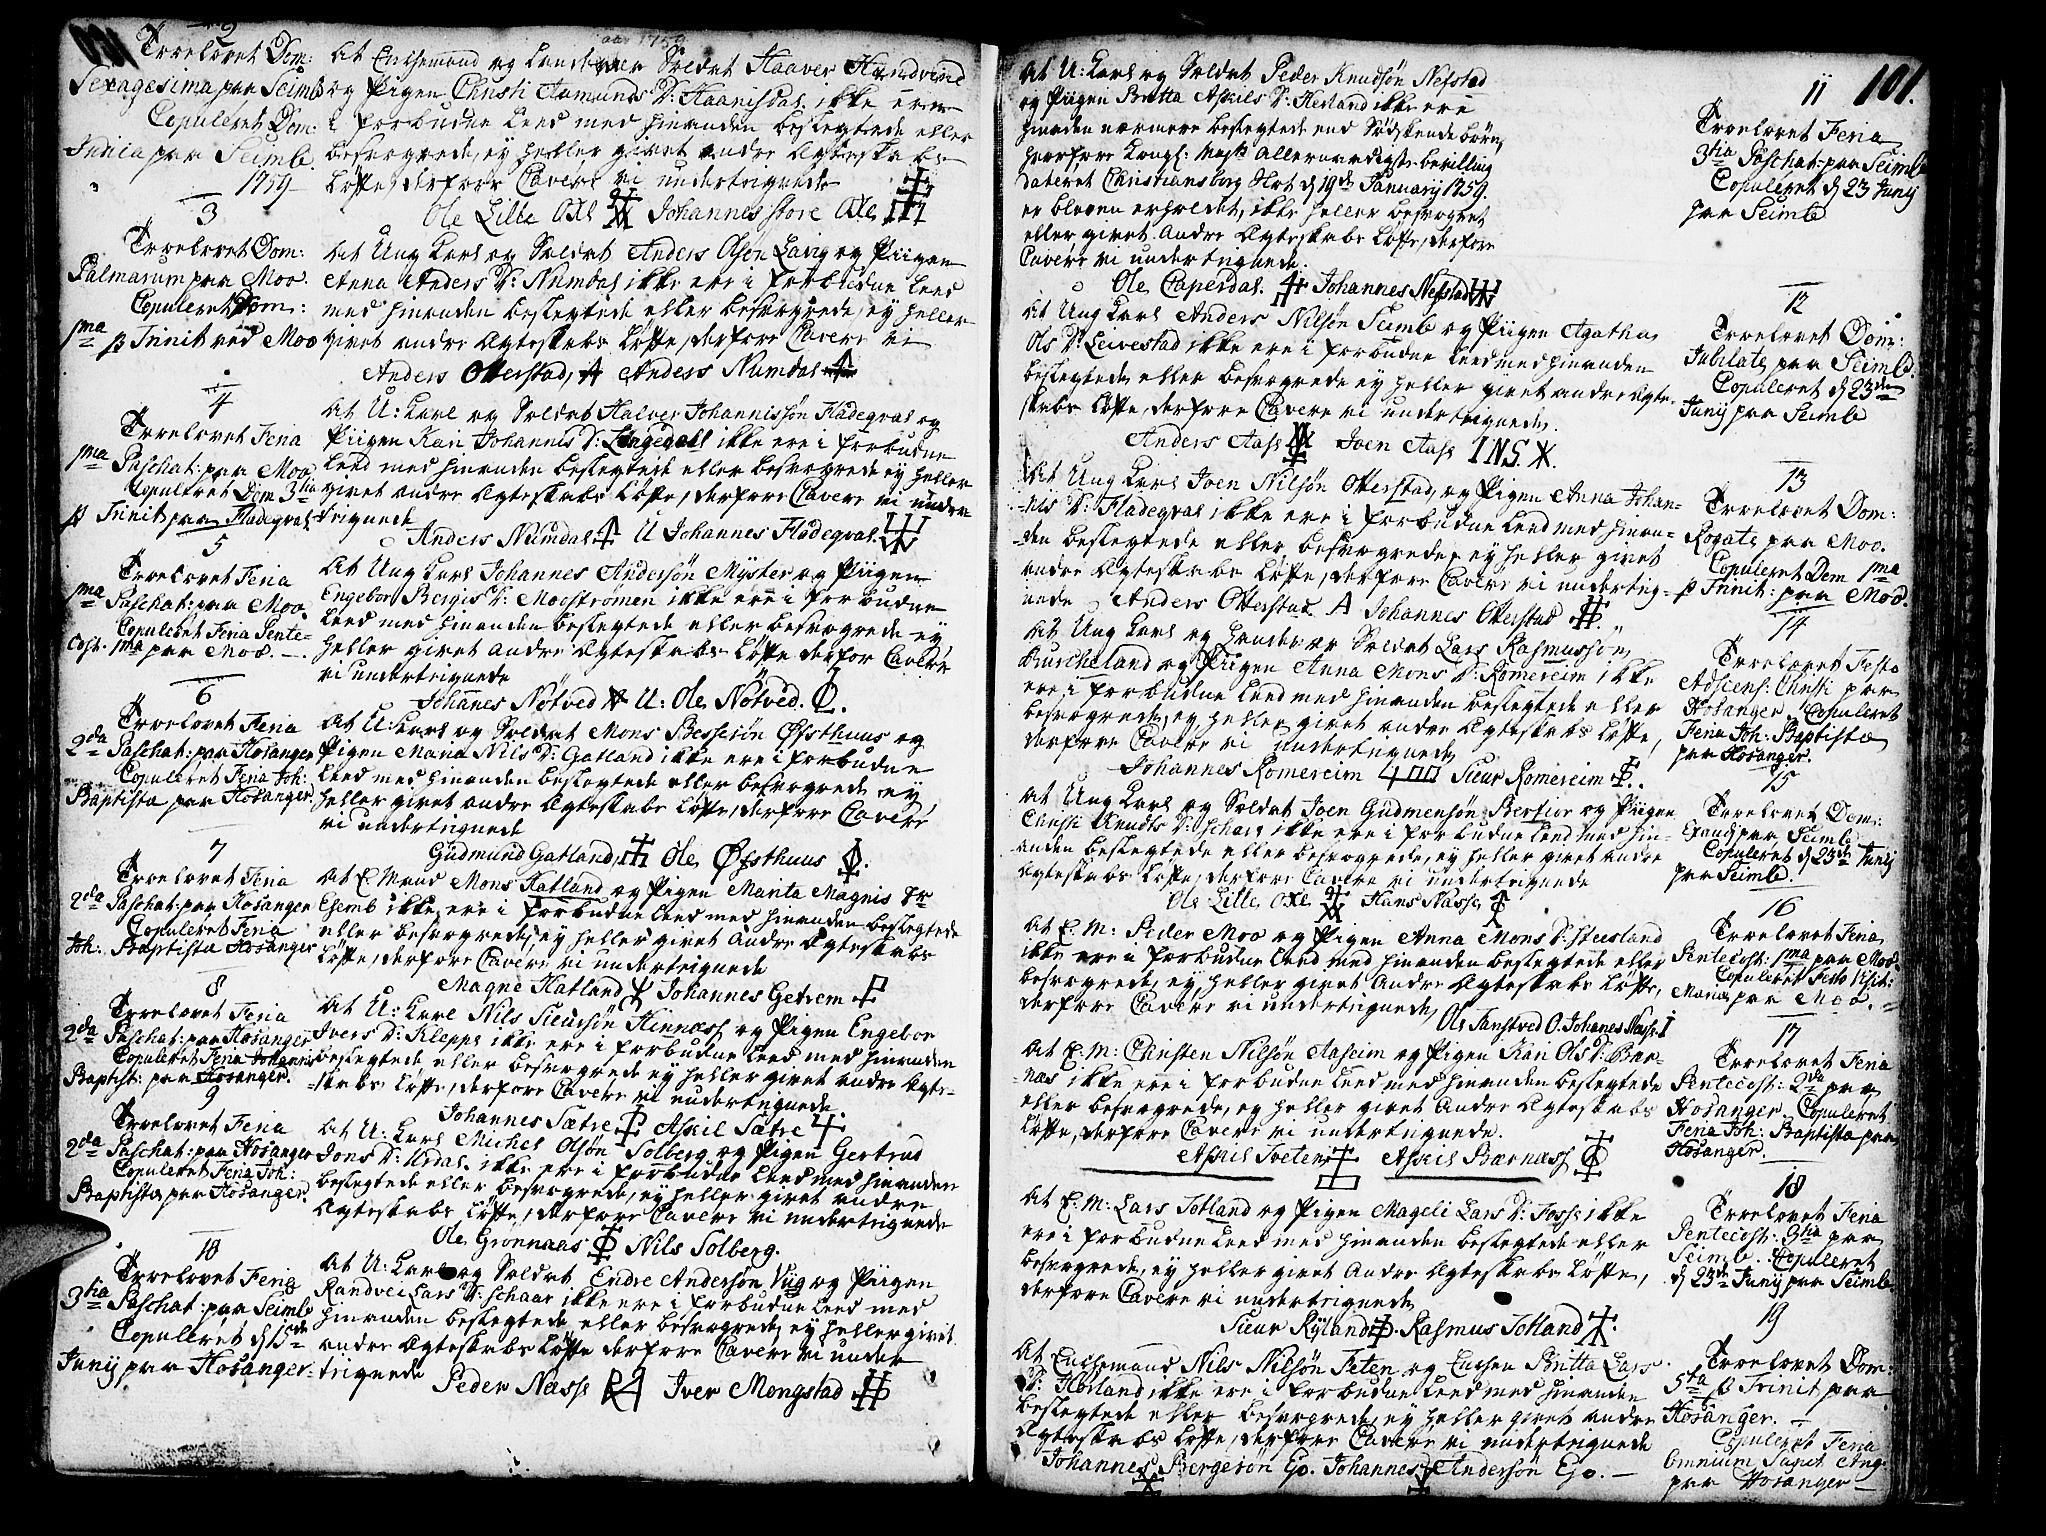 101
2
aar 1759
Troelovet Dom:
Sexagesima paa Seimb
Copuleret Dom:
paa Seimb
1759
At Enchemand og Soldat Haaver Hundvind
og Pigen Christi Aamunds D: Haanisdal ikke ere
i forbudne Leed med hinanden beslegtede eller
besvogrede, ey heller givet andre Ægteskabs
Løfte, derfore Cavere vi undertegnede
Ole Lille Oxe Johannes store Oxe
3
Troelovet Dom:
Palmarum paa Moo.
Copuleret Dom:
1ma p Trinit ved Moo
At Ung Karl og Soldat Anders Olsen Lavig og Piigen
Anna Anders D: Numdal ikke ere i forbudne Leed
med hinanden beslegtede eller besvogrede, ey heller
givet andre Ægteskabs Løfte, derfore Cavere vi
Anders Otterstad, A Anders Numdal
4
Troelovet Feria
1ma Paschat: paa Moo
Copuleret Dom 3tia
p Trinit paa Fladeqval
At U: Karl og Soldat Halver Johannissøn Fladeqval og
Piigen Kari Johannis D: Langedall ikke ere i forbudne
Leed med hinanden beslegtede eller besvogrede ey heller
givet andre Ægteskabs Løfte, derfore Cavere vi under-
tegnede
Anders Numdal U Johannes Fladeqval
5
Troelovet Feria
1ma Paschat: paa Moo
Copuleret Feria Pente-
cost. 1ma paa Moo.
At Ung Karl Johannes Andersøn Myster og Piigen
Engebor Bergis D: Moostromen ikke ere i forbudne
Leed med hinanden beslegtede eller besvogrede ey
heller givet andre Ægteskabs Løfte derfor Cavere
vi undertegnede
Johanes Nötved U: Ole Nötved.
6
Troelovet Feria
2da Paschat: paa Hosanger
Copuleret Feria Joh:
Baptista paa Hosanger.
At U: Karl og Soldat Mons Bessesøn Øfsthuus og
Pigen Maria Nils D: Gatland ikke ere i forbudne
Leed med hinanden beslegtede eller besvogrede ey
heller givet andre Ægteskabs Løfte, derfore Cavere
vi undertegnede
Gudmund Gatland, Ole Øfsthuus
7
Troelovet Feria
2da Paschat: paa Hosanger
Copuleret Feria
Joh: Baptista Hosanger
At E Mand Mons Hatland og Pigen Marita Magnis Dr
Eseimb ikke ere i forbudne Leed med hinanden beslegtede
eller besvogrede, ey heller givet Andre Ægteskabs
Løfte, derfore Cavere vi undertegnede
Magne Hatland Johannes Getrem
8
Troelovet Feria
2da Paschat: paa Hosanger
Copuleret Feria Johannis
Baptist: paa Hosanger.
At U: Karl Nils Sieursøn Hinnæss og Pigen Engebor
Ivers D: Kleppe ikke ere i forbudne Leed med hinanden
beslegtede eller besvogrede ey heller givet andre Ægte-
skabs Løfte, derfore Cavere vi undertegnede.
Johannes Sætre Askil Sætre
9
Troelovet Feria
2da Paschat: paa Hosanger
Copuleret Feria Joh:
Baptista paa Hosanger.
At U: Karl Michel Olsøn Solberg og Pigen Gertrud
Jons D: Urdal ikke ere i forbudne Leed med hinanden
beslegtede eller besvogrede, ey heller givet andre
Ægteskabs Løfte, derfore Cavere vi undertegnede
Ole Gronnaas Nils Solberg.
10
Troelovet Feria
3tia Paschat: paa Seimb
Copuleret d 15de
Junij paa Hosanger
At U: Karl og Soldat Endre Andersøn Viig og Piigen
Randvei Lars D: Schaar ikke ere i forbudne Leed med
hinanden beslegtede eller besvogrede ey heller givet
andre Ægteskabs Løfte derfore Cavere vi under
tegnede
Peder Næss Iver Mongstad
101.
At U: Karl og Soldat Peder Knudsøn Nefstad
og Piigen Britta Askils D: Herland ikke ere
hinanden nærmere beslegtede end Södskende børn,
hvorfore Kongl: Mayts Allernaadigste bevilling
dateret Christiansborg Slot d 19de Januarij 1759.
er bleven erholdet, ikke heller besvogret
eller givet Andre Ægteskabs Løfte, derfore
Cavere vi undertegnede.
Ole Caperdal. Johannes Nefstad
11
Troelovet Feria
3tia Paschat: paa Seimb
Copuleret d 23 Junij
paa Seimb
At Ung Karl Anders Nilsøn Seimb og Piigen Agatha
Ols D: Leivestad ikke ere i forbudne Leed med hinanden
beslegtede eller besvogrede ey heller givet andre Ægte-
skabs Løfte, derfore Cavere vi undertegnede.
Anders Aase Joen Aase INS.
12
Troelovet Dom:
Jubilate paa Seimb.
Copuleret d 23de
Junij paa Seimb
At Ung Karl Joen Nilsøn Otterstad, og Pigen Anna Johan-
nis D: Fladeqval ikke ere i forbudne Leed med hinan-
den beslegtede eller besvogrede ey heller givet
andre Ægteskabs Løfte, derfore Cavere vi underteg-
nede Anders Otterstad A Johannes Otterstad
13
Troelovet Dom:
Rogate paa Moo.
Copuleret Dom 1ma
p Trinit: paa Moo.
At Ung Karl og Landevær Soldat Lars Rasmussøn
Burcheland og Piigen Anna Mons D: Romereim ikke
ere i forbudne Leed med hinanden beslegtede eller
besvogrede, ey heller givet andre Ægteskabs Løfte,
derfore Cavere vi undertegnede
Johannes Romereim Sieur Romereim
14
Troelovet Festo
Adscens: Christi paa
Hosanger. Copuleret
Feria Joh: Baptista
paa Hosanger.
At Ung Karl og Soldat Joen Gudmensøn Berfior og Piigen
Christi Knudts D: Schaar ikke ere i forbudne Leed med hin-
anden beslegtede eller besvogrede, ey heller givet andre
Ægteskabs Løfte, derfore Cavere vi undertegnede
Ole Lille Oxe Hans Næss
15
Troelovet Dom:
Exaudi paa Seimb
Copuleret d 23de Junij
paa Seimb.
At E: M: Peder Moo og Pigen Anna Mons D: Steesland
ikke ere i forbudne Leed med hinanden beslegtede eller
besvogrede, ey heller givet Andre Ægteskabs Løfte,
derfore Cavere vi undertegnede
Ole Tanstved O. Johanes Næss I
16
Troelovet Feria
Pentecost: 1ma paa Moo.
Copuleret Festo Visit:
Mariæ paa Moo.
At E: M: Christen Nilsøn Aasheim og Pigen Kari Ols D: Bær-
næs ikke ere i forbudne Leed med hinanden beslegtede
eller besvogrede, ey heller givet Andre Ægteskabs
Løfte, derfore Cavere vi undertegnede.
Askil Tveten Askil Bærnæss
17
Troelovet Feria
Pentecost: 2da paa
Hosanger Copuleret
Feria Joh: Baptista paa
Hosanger.
At E: M: Lars Totland og Pigen Mageli Lars D: Fosse ikke
ere i forbudne Leed med hinanden beslegtede eller
besvogrede, ey heller givet Andre Ægteskabs Løfte,
derfore Cavere vi undertegnede
Sieur Ryland. Rasmus Totland
18
Troelovet Feria
Pentecost: 3tia paa
Seimb. Copuleret
d 23de Junij paa Seimb
At Enchemand Nils Nilsøn Feten og Enchen Britta Lars
D: Horland ikke ere i forbudne Leed med hinanden
beslegtede eller besvogrede, ey heller givet andre
Ægteskabs Løfte, derfore Cavere vi undertegnede
Johannes Bergesøn Ejo. Johannes Andersøn Ejo.
19
Troelovet Dom:
5ta p Trinit paa
Hosanger.
Copuleret Feria
Omnium Ang:
paa Hosanger